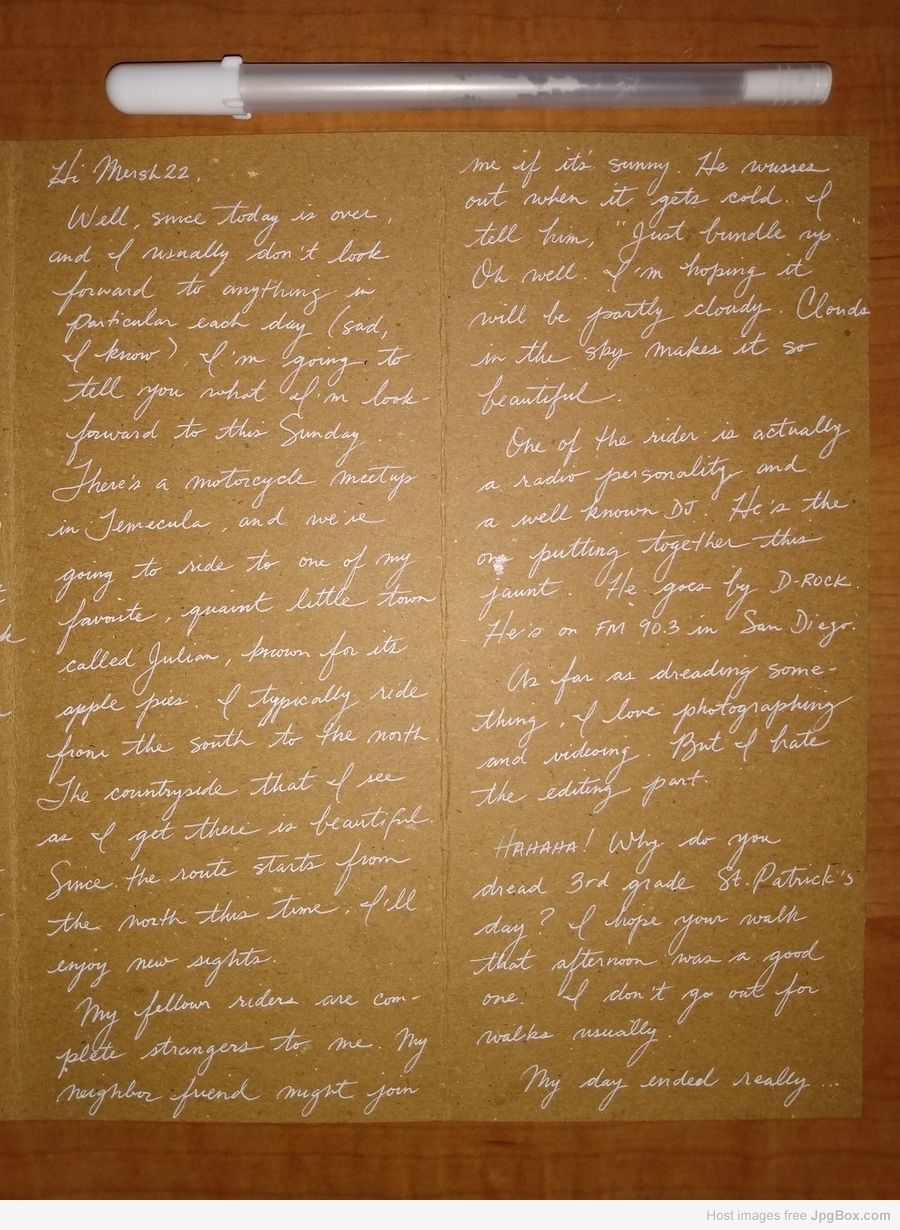 Hi Mersh22,
Well, since today is over,
and I usually don't look
forward to anything in
particular each day (sad,
I know), I'm going to
tell you what I'm look-
forward to this Sunday.
There's a motorcycle meetup
in Temecula, and we're
going to ride to one of my
favorite, quaint little town
called Julian, known for its
apple pies. I typically ride
from the south to the north.
The countryside that I see
as I get there is beautiful.
Since the route starts from
the north this time, I'll
enjoy new sights.
My fellow riders are com-
plete strangers to me. My
neighbor friend might join
me if it's sunny. He wusses
out when it gets cold. I
tell him, "Just bundle up."
Oh well. I'm hoping it
will be partly cloudy. Clouds
in the sky makes it so
beautiful.
One of the rider is actually
a radio personality and
a well known DJ. He's the
one putting together this
jaunt. He goes by D-ROCK.
He's on FM 90.3 in San Diego.
As far as dreading some-
thing, I love photographing
and videoing. But I hate
the editing part.
HAHAHA! Why do you
dread 3rd grade St. Patrick's
day? I hope your walk
that afternoon was a good
one. I don't go out for
walks usually.
My day ended really...
Host images free JpgBox.com